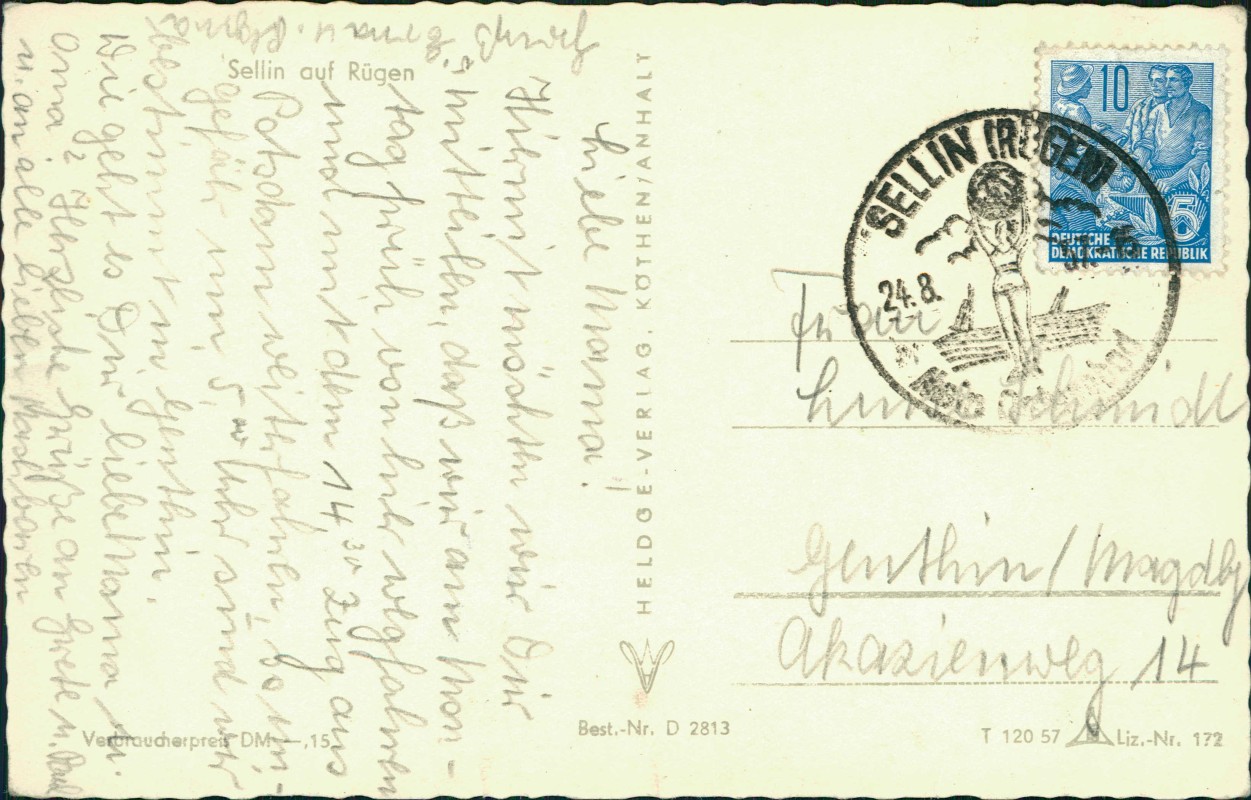 Sellin auf Rügen
Liebe Mama!
Hiermit möchten wir Dir
mitteilen, daß wir am Mon-
tag früh von hier wegfahren
und mit dem 14,30 Zug aus
Potsdam weiterfahren, so un-
gefähr um 5,00 Uhr sind wir
bestimmt in Genthin.
Wie geht es Dir liebe Mama u.
Oma? Herzliche Grüße an Grete u. Paul
u. an alle lieben Nachbarn
Gruß Erna u.
HELDGE-VERLAG, KÖTHEN/ANHALT
10
5
DEUTSCHE
DEMOKRATISCHE REPUBLIK
SELLIN (RÜGEN)
24.8.
Frau
Schmidt
Genthin/Magdbg
Akazienweg 14
Verbraucherpreis DM —,15
Best.-Nr. D 2813
T 120 57
Liz.-Nr. 172